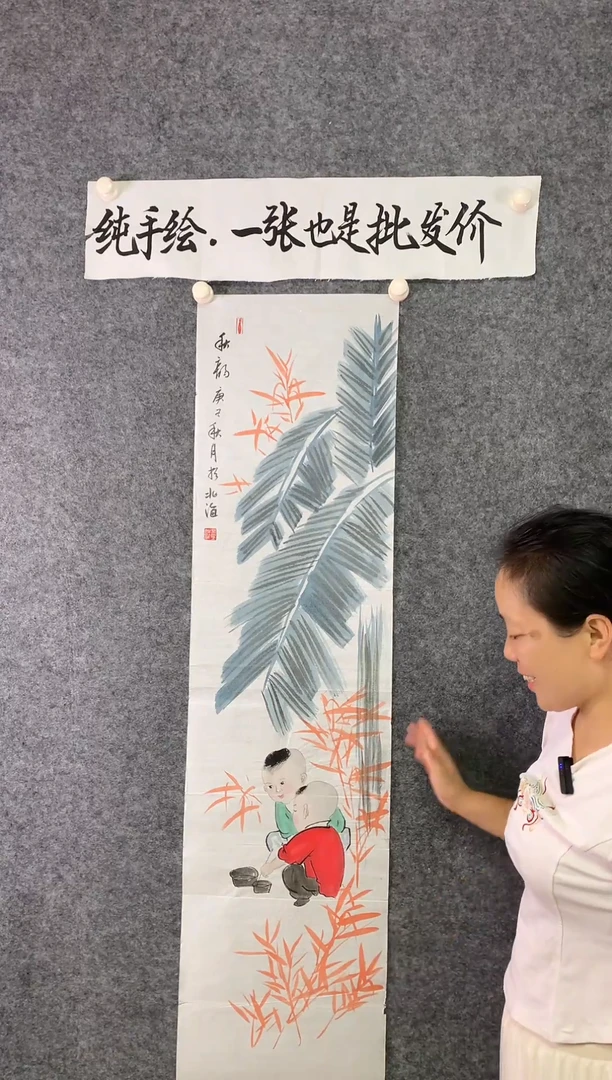 纯手绘.一张也是批发价
秋韵庚子秋月於北海